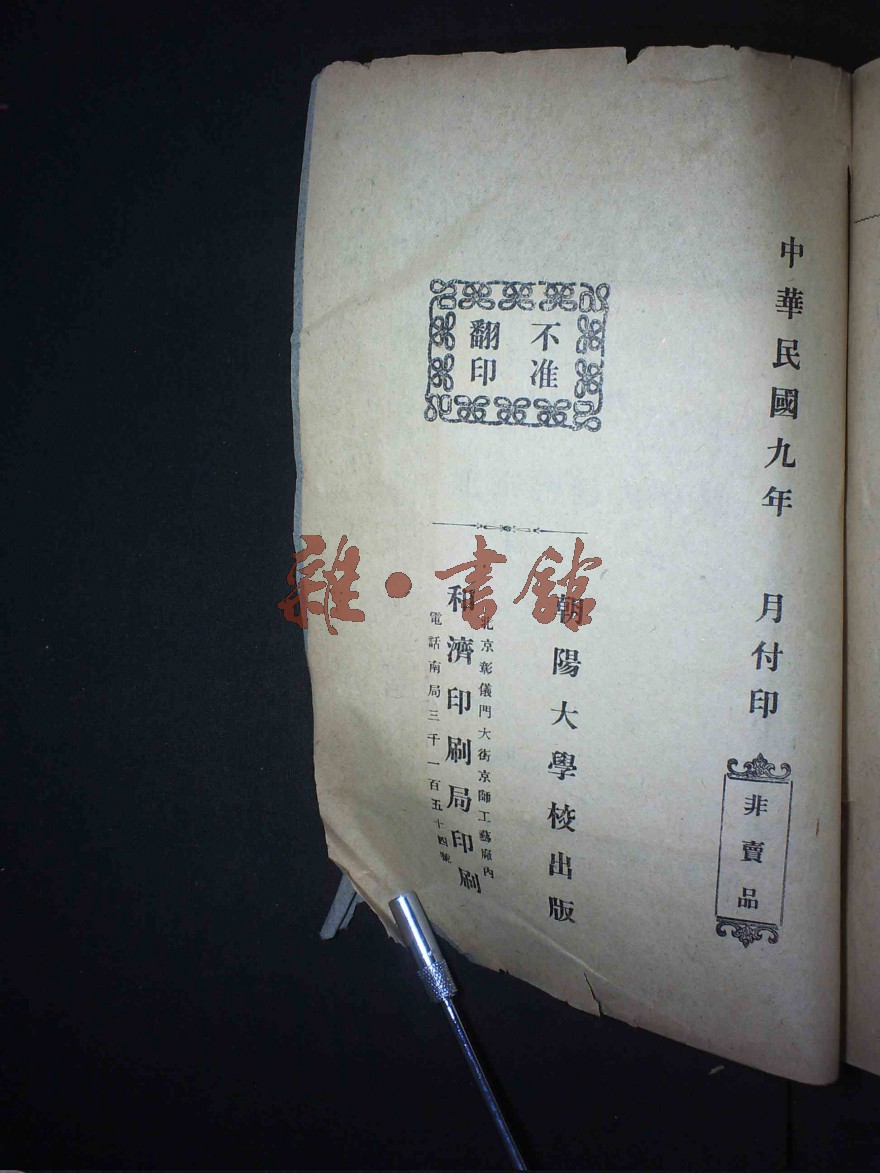 中華民國九年 月付印
非賣品
不准
翻印
朝陽大學校出版
北京彰儀門大街京師工藝廠內
和濟印刷局印刷
電話南局三千一百五十四號
雜·書館